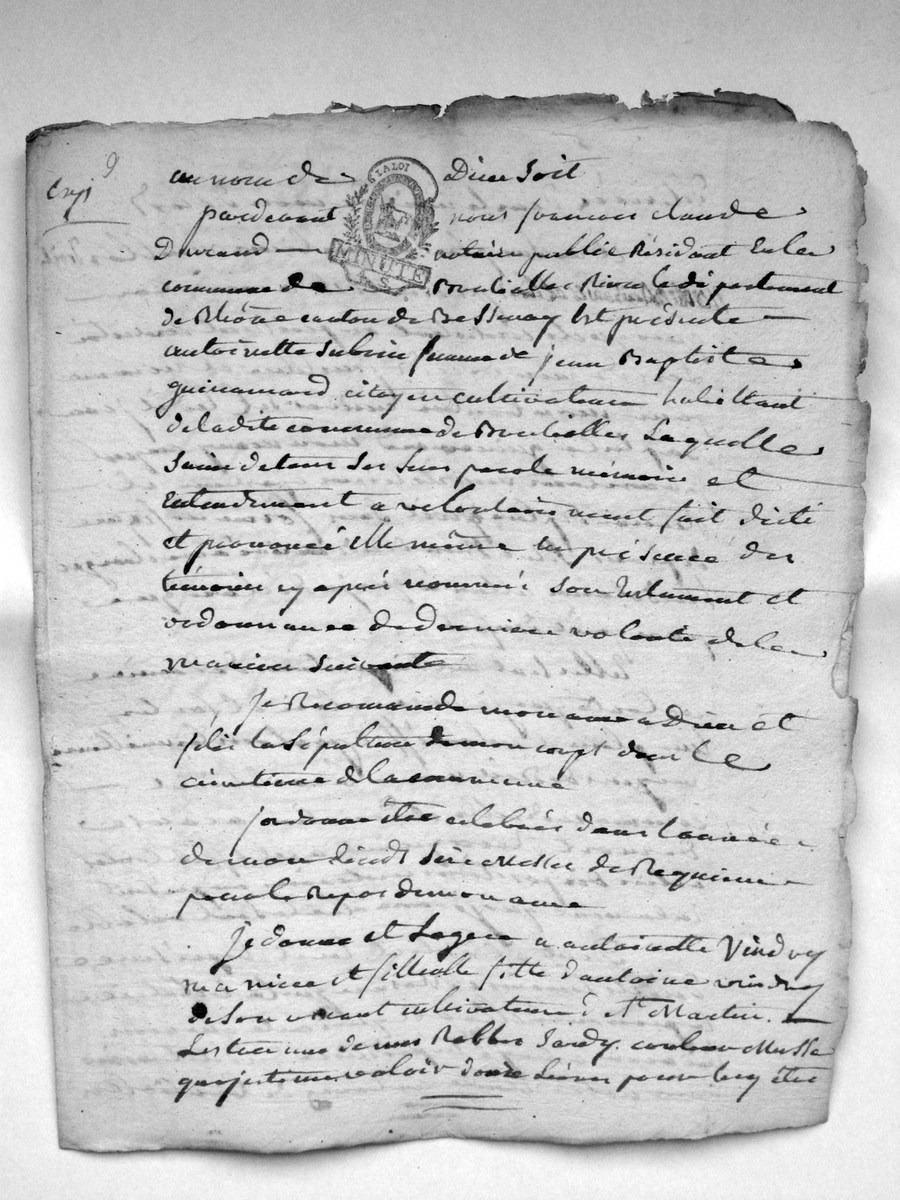 au nom de Dieu soit
LA LOI
MINUTE
pardevant nous francois claude
Durand notaire public Résidant en la
commune de Brullioles Riviere le département
de Rhône canton de Bessenay Est présente
antoinette Subrin femme de jean Baptiste
citoyen cultivateur habittant
de la dite commune de Brullioles Laquelle
Saine de tous ses sens parole mémoire et
Entendement a volontairement fait dicté
et prononcé Elle même en présence des
témoins cy après nommés Son testament et
ordonnance de derniere volonté de la
maniere Suivante
je Recomande mon ame a Dieu et
la sépulture de mon corps dans le
cimetiere de la commune
jordonne être celebrés dans l'année
de mon décéds Messes de Requiem
pour le Repos de mon ame
je donne et Legue a antoinette Vindry
ma niece et fillieulle fille d'antoine vindry
de Son vivant cultivateur à St Martin
de mes Robbes couleur
que j'estime valoir douze Livres pour luy être